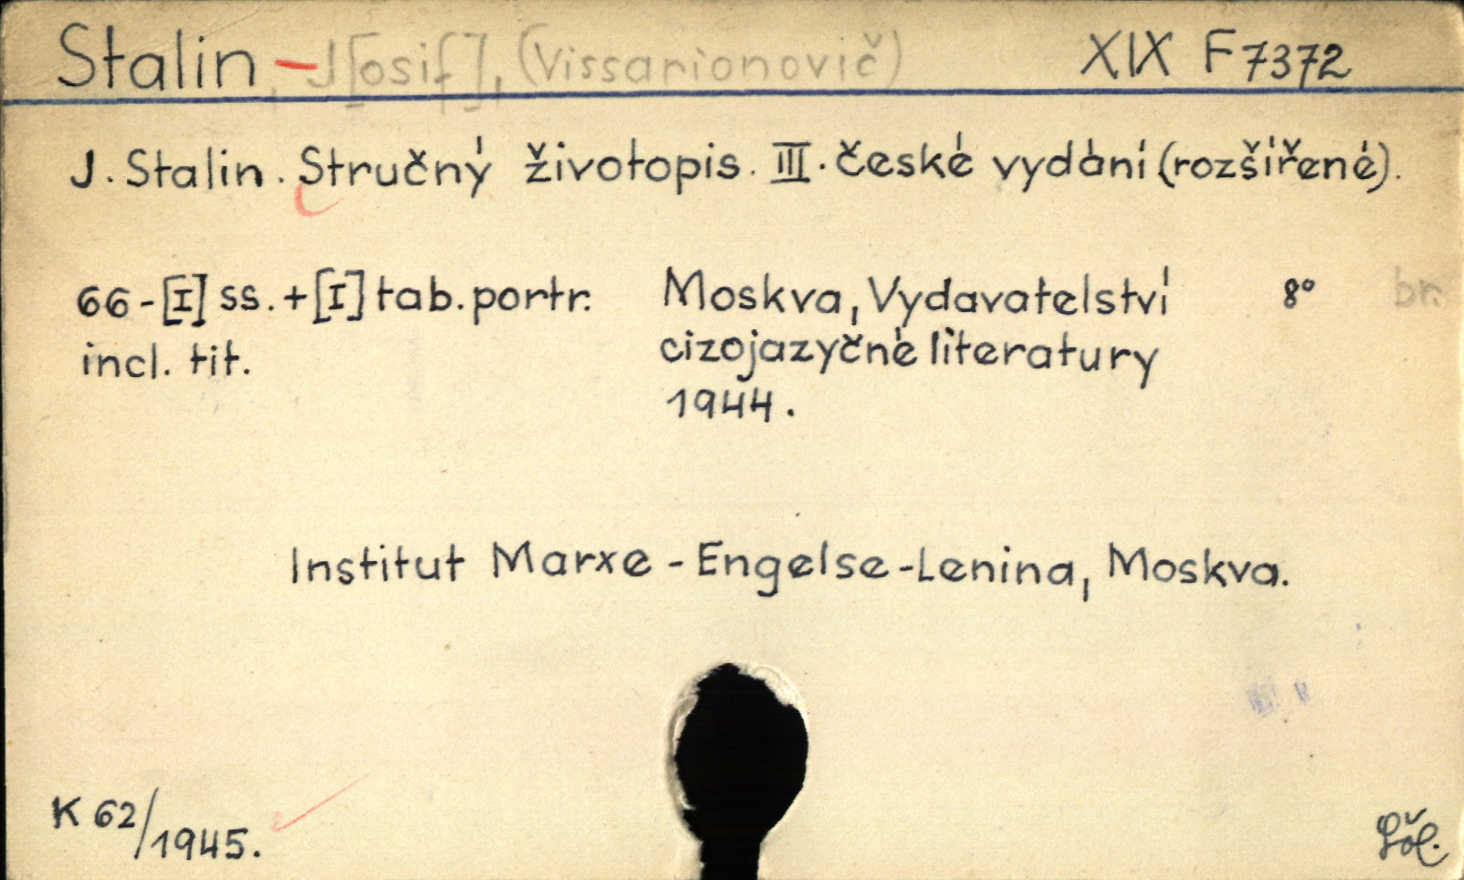 Stalin, J[osif], (Vissarionovič) XIX F 7372
J. Stalin. Stručný životopis. III. české vydání (rozšířené).
66-[I] ss. + [I] tab. portr. Moskva, Vydavatelství 8° br.
incl. tit. cizojazyčné literatury
1944.
Institut Marxe - Engelse - Lenina, Moskva.
K 62/1945.